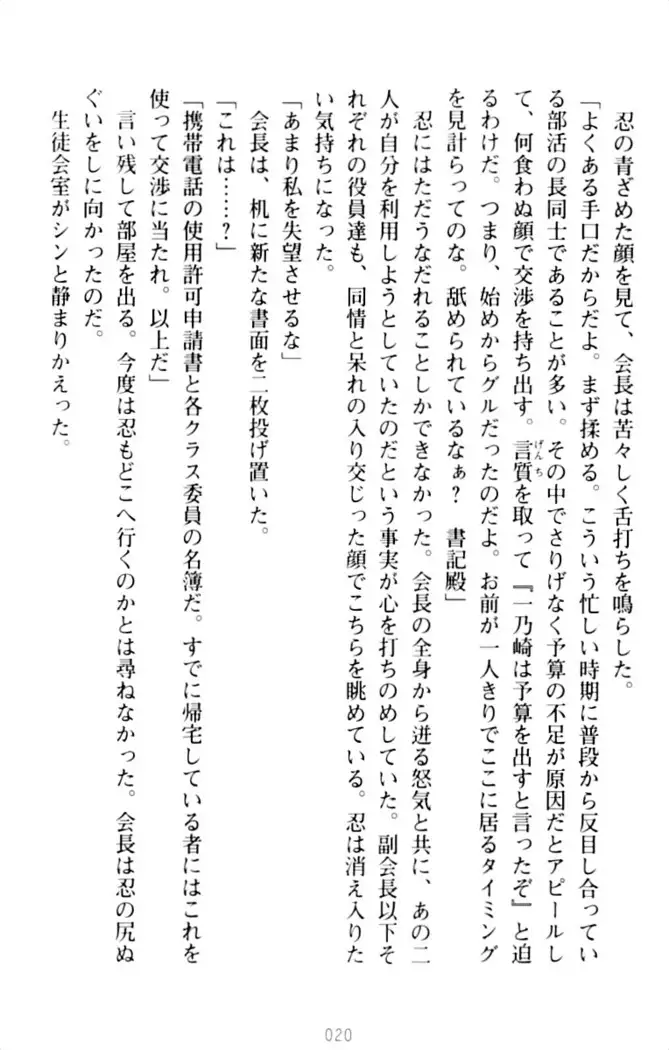 忍の青ざめた顔を見て、会長は苦々しく舌打ちを鳴らした。
「よくある手口だからだよ。まず揉める。こういう忙しい時期に普段から反目し合ってい
る部活の長同士であることが多い。その中でさりげなく予算の不足が原因だとアピールし
て、何食わぬ顔で交渉を持ち出す。言質を取って『一乃崎は予算を出すと言ったぞ』と迫
るわけだ。つまり、始めからグルだったのだよ。お前が一人きりでここに居るタイミング
を見計らってのな。舐められているなぁ？　書記殿」
忍にはただうなだれることしかできなかった。会長の全身から迸る怒気と共に、あの二
人が自分を利用しようとしていたのだという事実が心を打ちのめしていた。副会長以下そ
れぞれの役員達も、同情と呆れの入り交じった顔でこちらを眺めている。忍は消え入りた
い気持ちになった。
「あまり私を失望させるな」
会長は、机に新たな書面を二枚投げ置いた。
「これは……？」
「携帯電話の使用許可申請書と各クラス委員の名簿だ。すでに帰宅している者にはこれを
使って交渉に当たれ。以上だ」
言い残して部屋を出る。今度は忍もどこへ行くのかとは尋ねなかった。会長は忍の尻ぬ
ぐいをしに向かったのだ。
生徒会室がシンと静まりかえった。
げんち
020